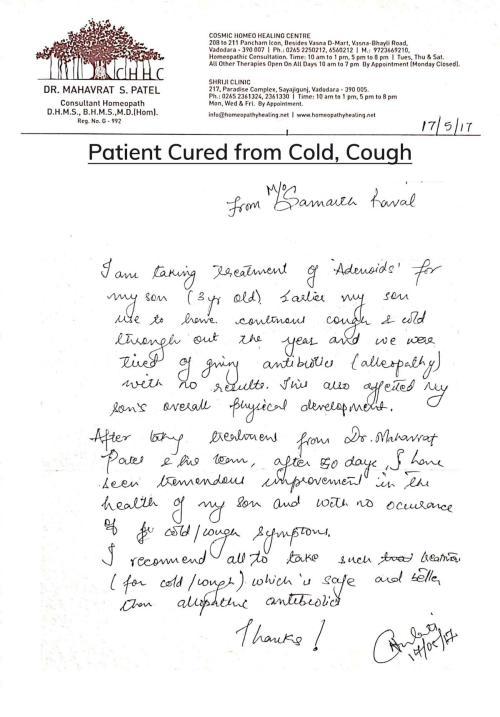 COSMIC HOMEO HEALING CENTRE
208 to 211 Pancham Icon, Besides Vasna D-Mart, Vasna-Bhayli Road,
Vadodara - 390 007 | Ph.: 0265 2250212, 6560212 | M.: 9723669210,
Homeopathic Consultation. Time: 10 am to 1 pm, 5 pm to 8 pm | Tues, Thu & Sat.
All Other Therapies Open On All Days 10 am to 7 pm By Appointment (Monday Closed).
SHRIJI CLINIC
217, Paradise Complex, Sayajigunj, Vadodara - 390 005.
Ph.: 0265 2361324, 2361330 | Time: 10 am to 1 pm, 5 pm to 8 pm
Mon, Wed & Fri. By Appointment.
info@homeopathyhealing.net | www.homeopathyhealing.net
CHHC
DR. MAHAVRAT S. PATEL
Consultant Homeopath
D.H.M.S., B.H.M.S.,M.D.(Hom).
Reg. No. G - 992
17/5/17
Patient Cured from Cold, Cough
from M/O Samarth Raval
I am taking treatment of 'Adenoids' for
my son (3 yr old). Earlier my son
use to have continous cough & cold
through out the year and we were
tired of giving antibiotics (alleopathy)
with no results. This also affected my
son's overall physical development.
After taking treatment from Dr. Mahavrat
Patel & his team, after 50 days, I have
seen tremendous improvement in the
health of my son and with no occurance
of cold/cough symptoms.
I recommend all to take such treatment
(for cold/cough) which is safe and better
than allopathic antibiotics
Thanks!
17/05/17